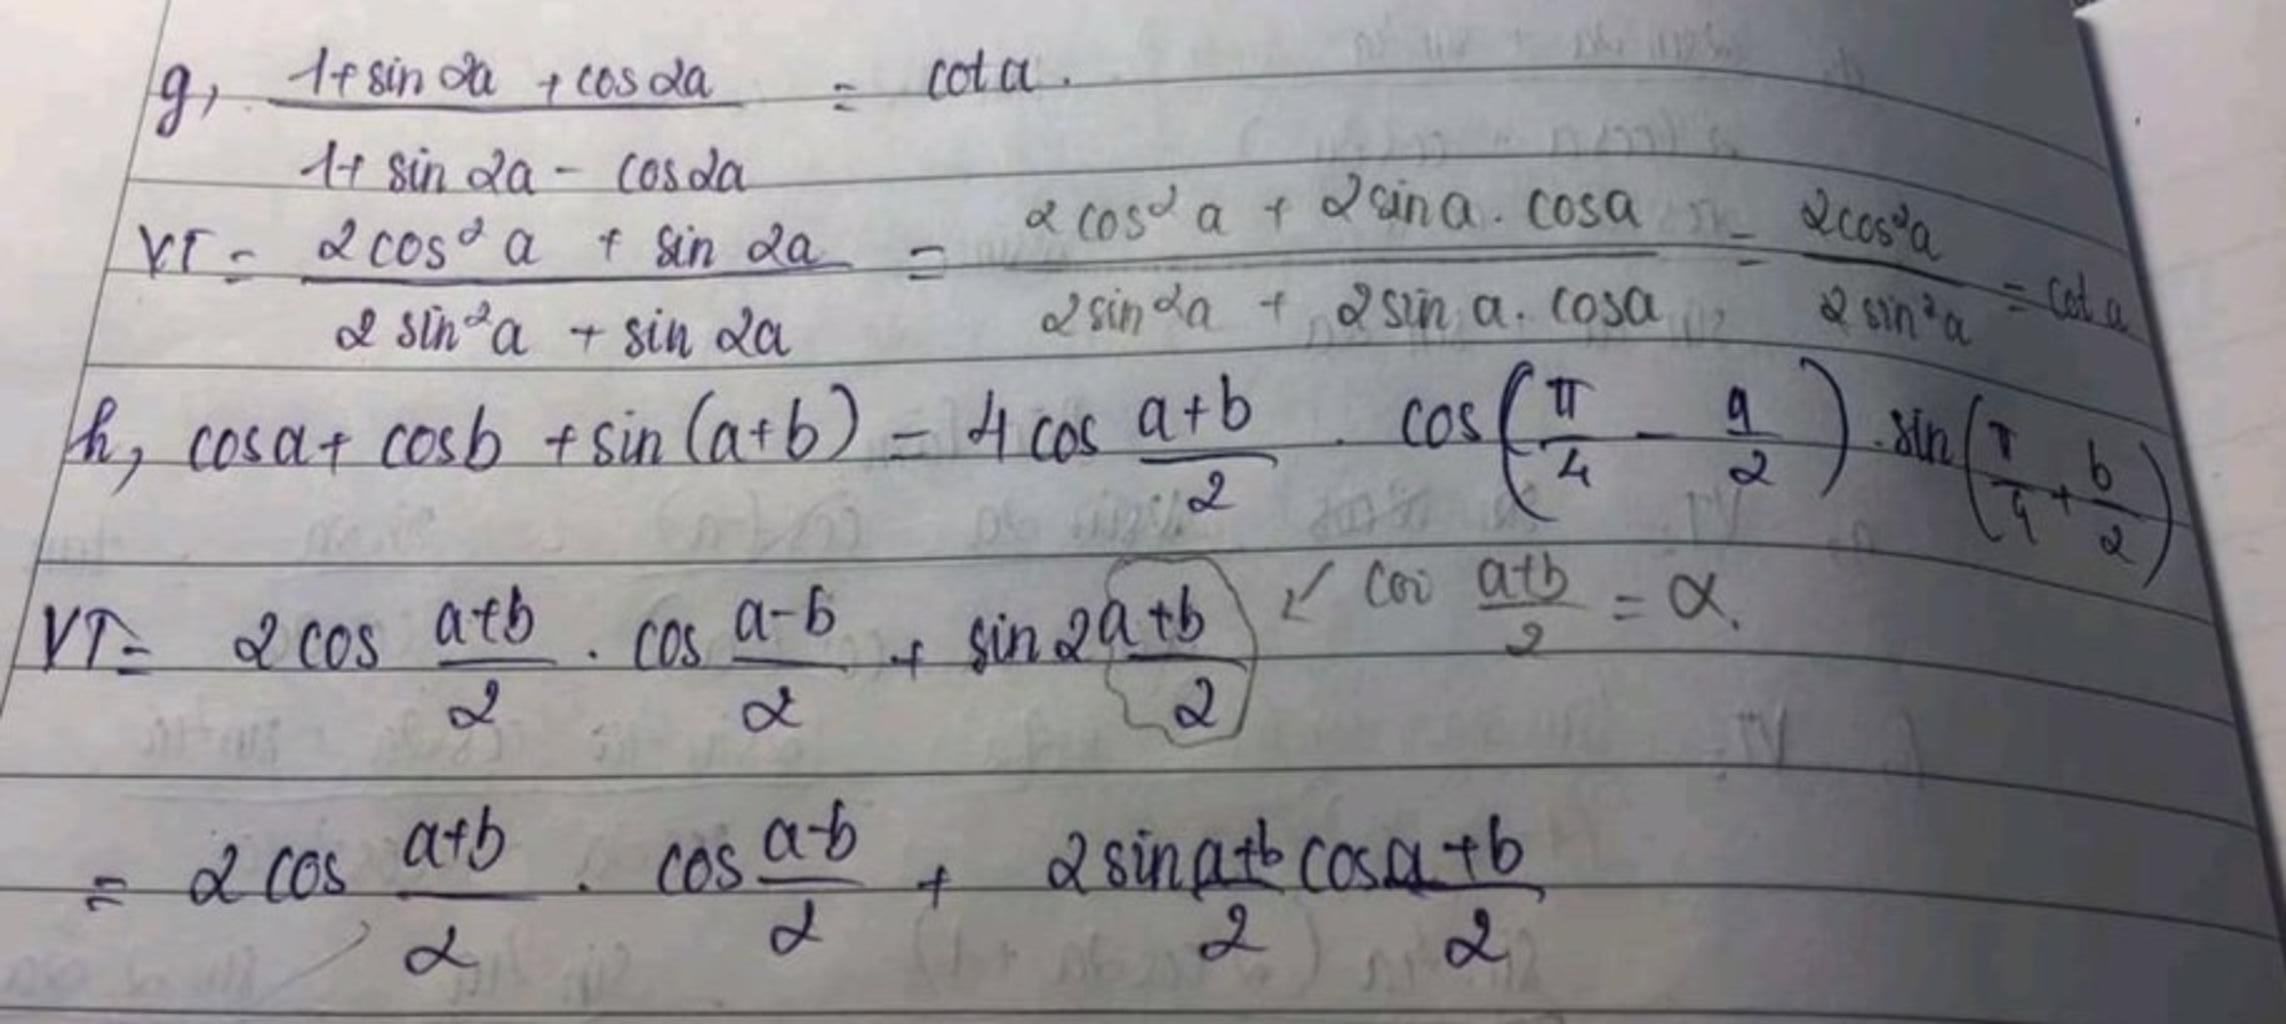 g, (1 + sin 2a + cos 2a) / (1 + sin 2a - cos 2a) = cot a.
VT = (2 cos² a + sin 2a) / (2 sin² a + sin 2a) = (2 cos² a + 2 sin a . cos a) / (2 sin² a + 2 sin a . cos a) = (2 cos² a) / (2 sin² a) = cot a
h, cos a + cos b + sin (a+b) = 4 cos (a+b)/2 . cos (π/4 - a/2) . sin (π/4 + b/2)
VT = 2 cos (a+b)/2 . cos (a-b)/2 + sin 2 (a+b)/2 ↙ coi (a+b)/2 = α.
= 2 cos (a+b)/2 . cos (a-b)/2 + 2 sin (a+b)/2 cos (a+b)/2